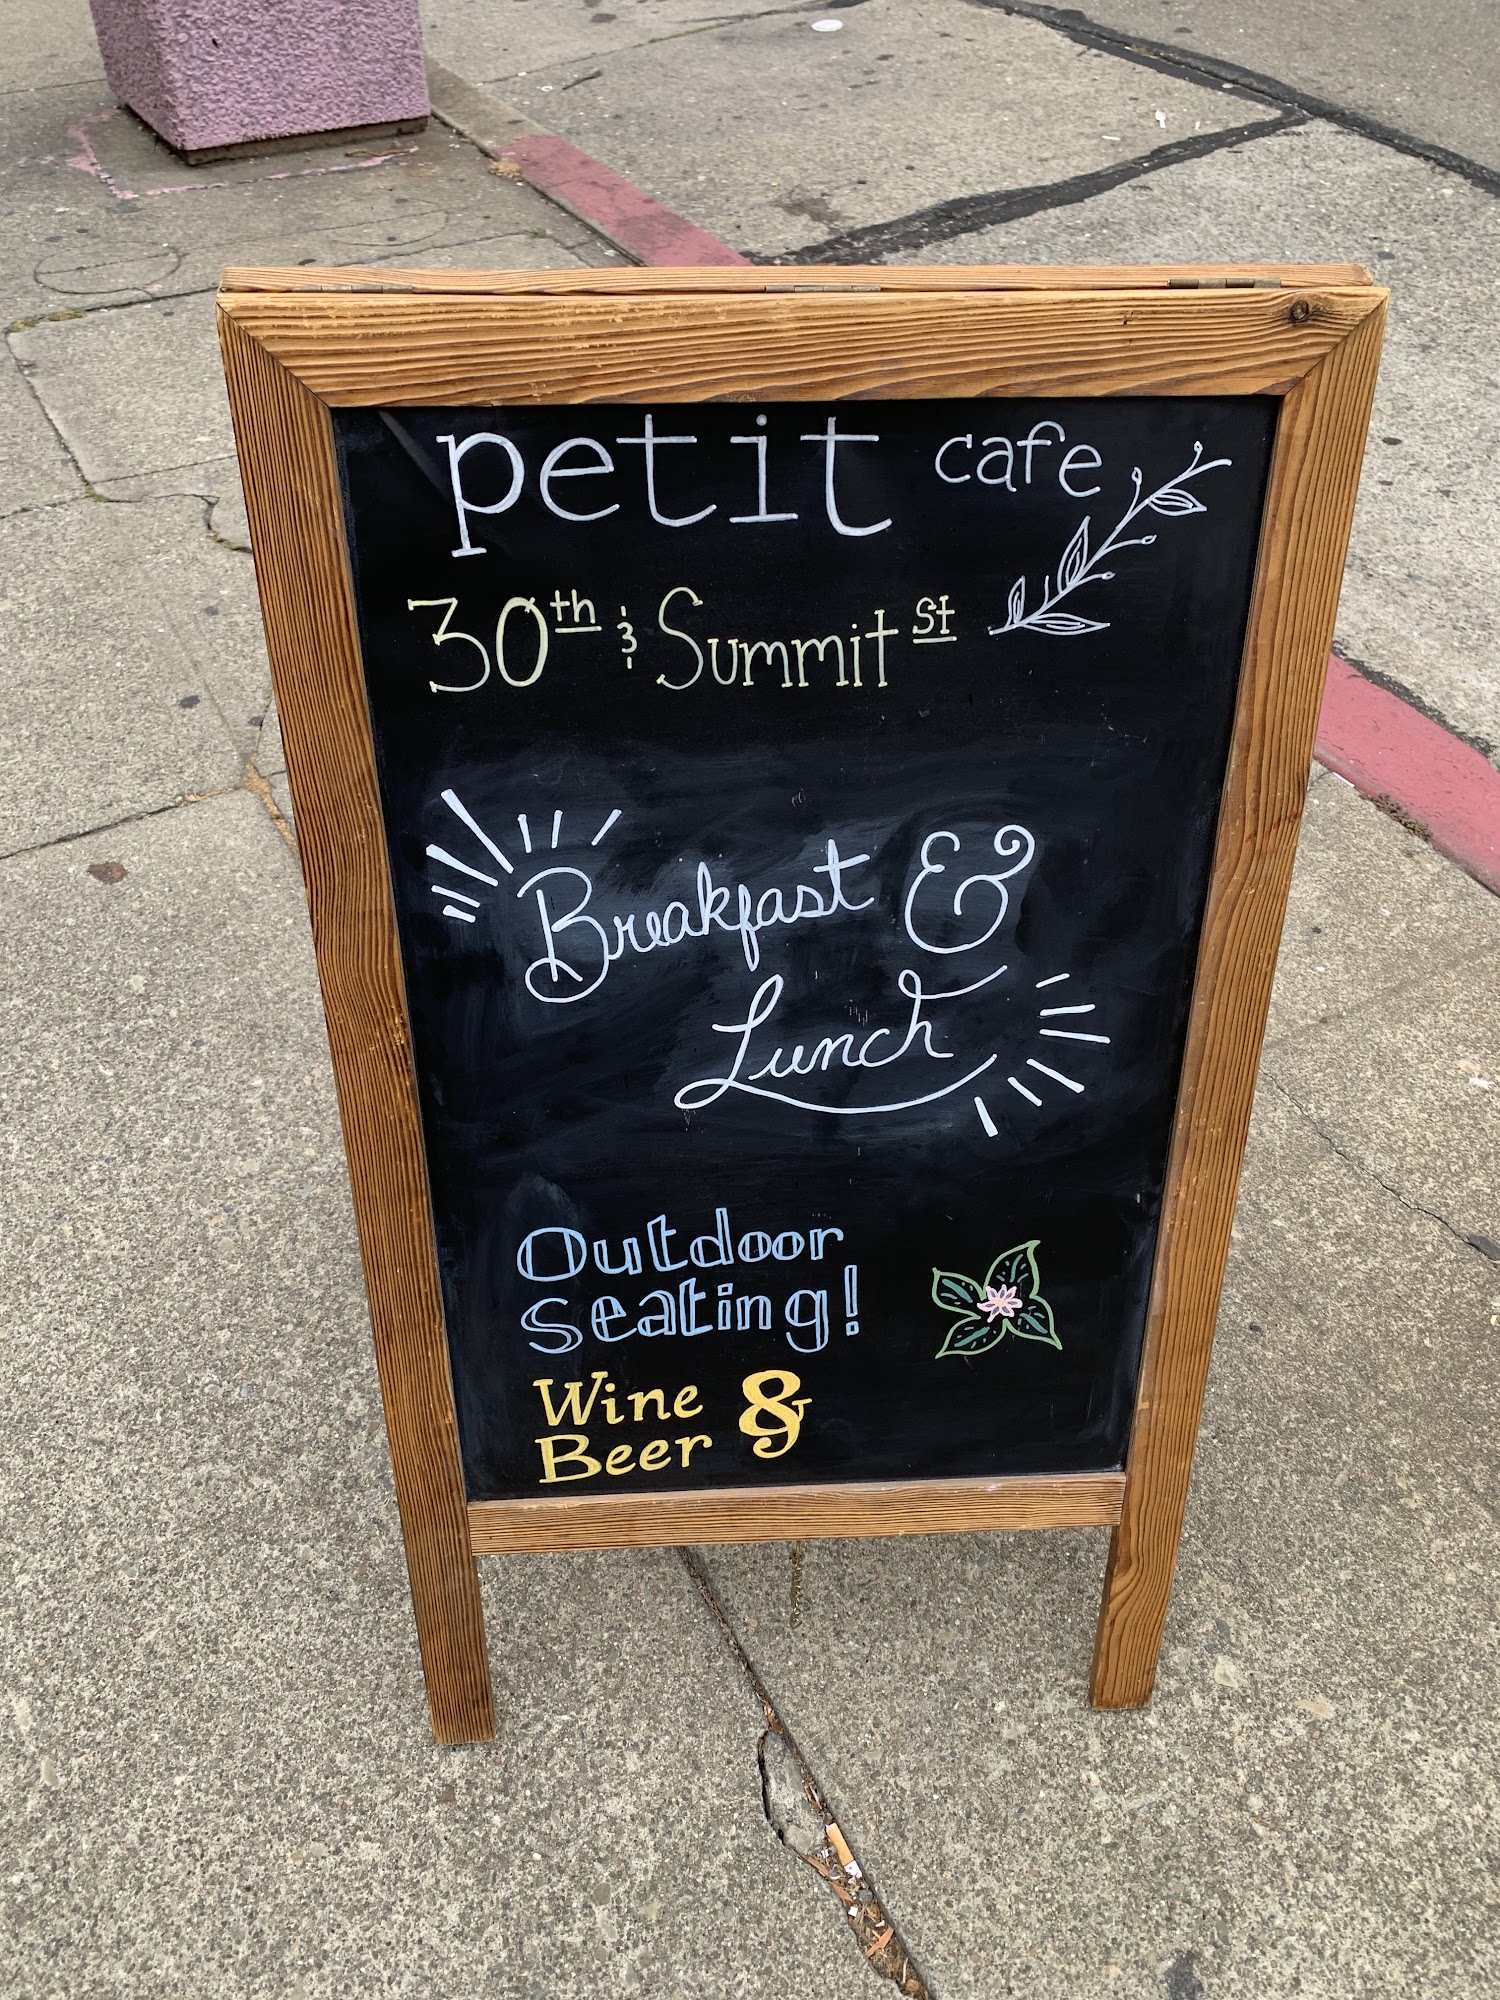 petit cafe
30th & Summit St
Breakfast &
Lunch
Outdoor
seating!
Wine &
Beer